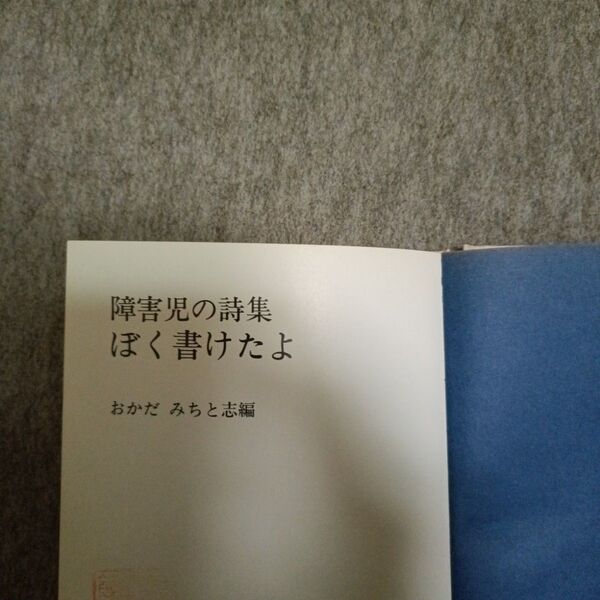 障害児の詩集
ぼく書けたよ
おかだ みちと志編